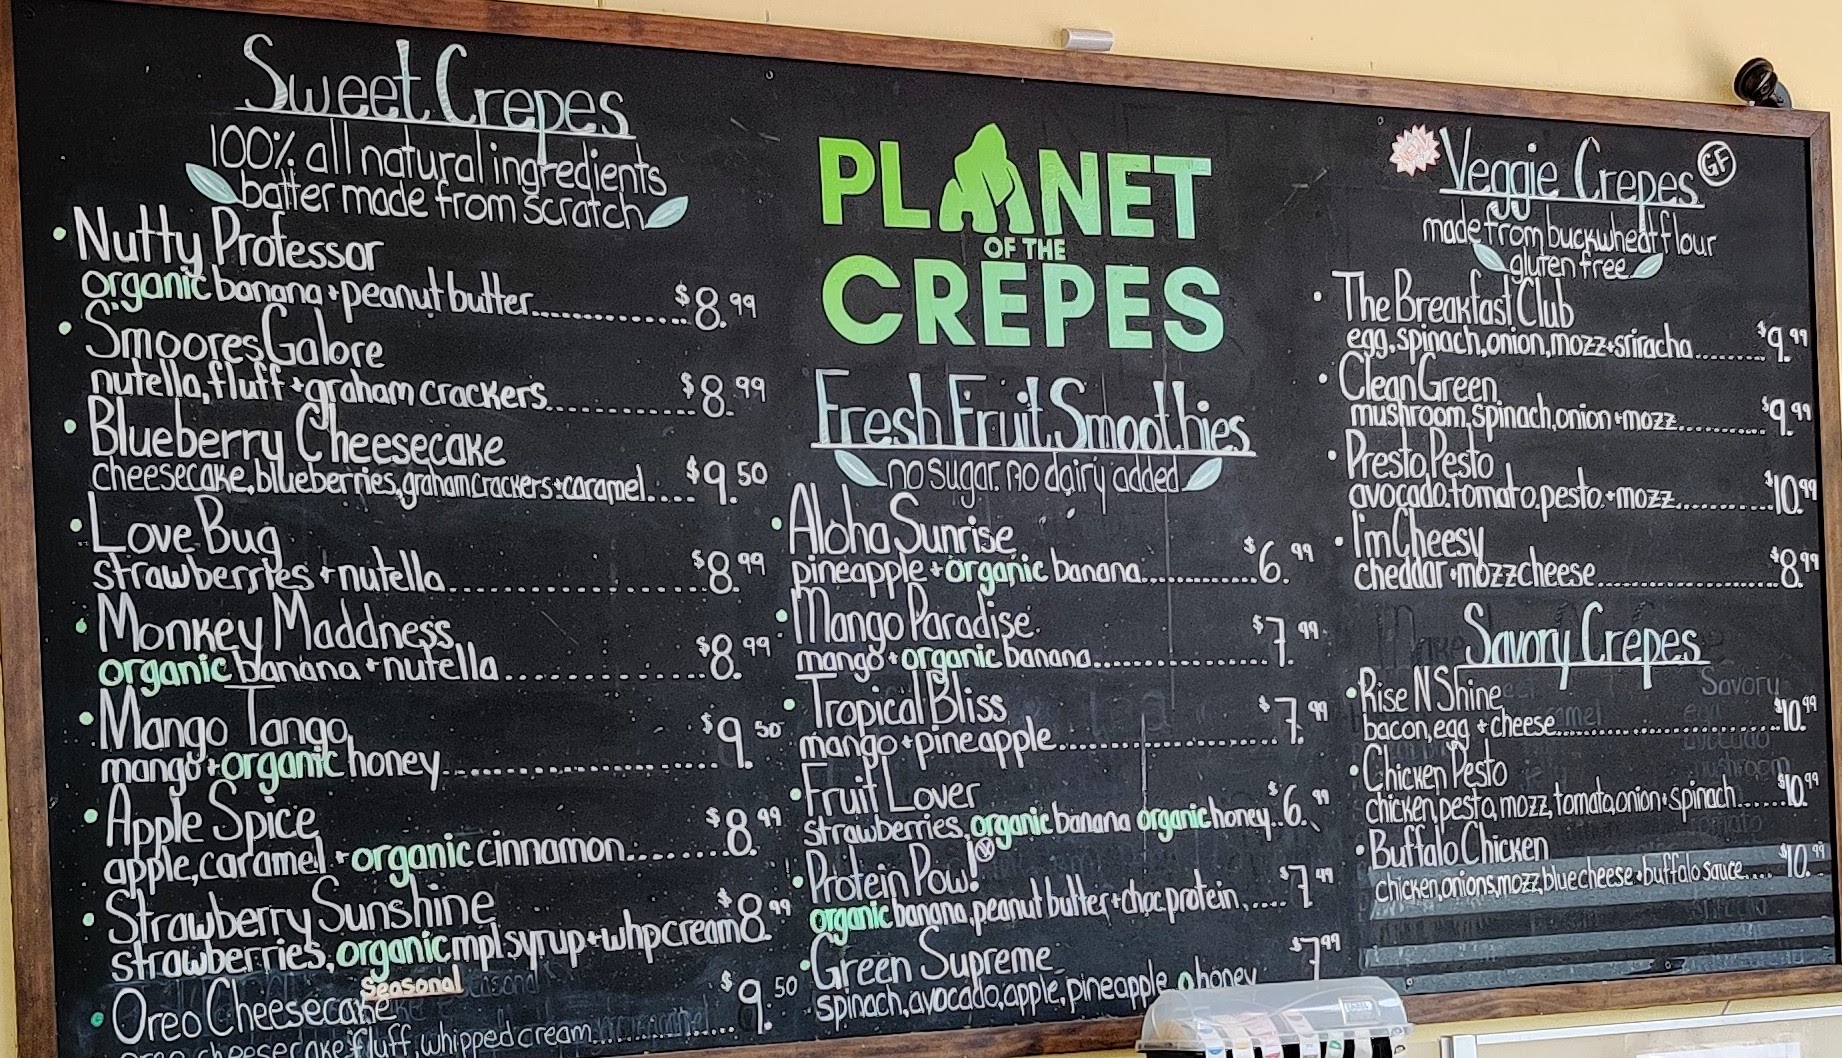 Sweet Crepes
100% all natural ingredients
batter made from scratch
• Nutty Professor
organic banana + peanut butter $8.99
• Smoores Galore
nutella, fluff + graham crackers $8.99
• Blueberry Cheesecake
cheesecake, blueberries, graham crackers + caramel $9.50
• Love Bug
strawberries + nutella $8.99
• Monkey Maddness
organic banana + nutella $8.99
• Mango Tango
mango + organic honey $9.50
• Apple Spice
apple, caramel + organic cinnamon $8.99
• Strawberry Sunshine
strawberries, organic mpl syrup + whp cream $8.99
Seasonal
• Oreo Cheesecake $9.50
oreo, cheesecake, fluff, whipped cream
PLANET
OF THE
CREPES
Fresh Fruit Smoothies
no sugar. no dairy added
• Aloha Sunrise
pineapple + organic banana $6.99
• Mango Paradise
mango + organic banana $7.99
• Tropical Bliss
mango + pineapple $7.99
• Fruit Lover
strawberries, organic banana organic honey $6.99
• Protein Pow!
organic banana, peanut butter + choc protein $7.99
• Green Supreme
spinach, avocado, apple, pineapple, o honey $7.99
NEW Veggie Crepes GF
made from buckwheat flour
gluten free
• The Breakfast Club
egg, spinach, onion, mozz + sriracha $9.99
• Clean Green
mushroom, spinach, onion + mozz $9.99
• Presto, Pesto
avocado, tomato, pesto + mozz $10.99
• I'm Cheesy
cheddar + mozz cheese $8.99
Savory Crepes
• Rise N Shine
bacon, egg + cheese $10.99
• Chicken Pesto
chicken, pesto, mozz, tomato, onion + spinach $10.99
• Buffalo Chicken
chicken, onions, mozz, blue cheese + buffalo sauce $10.99